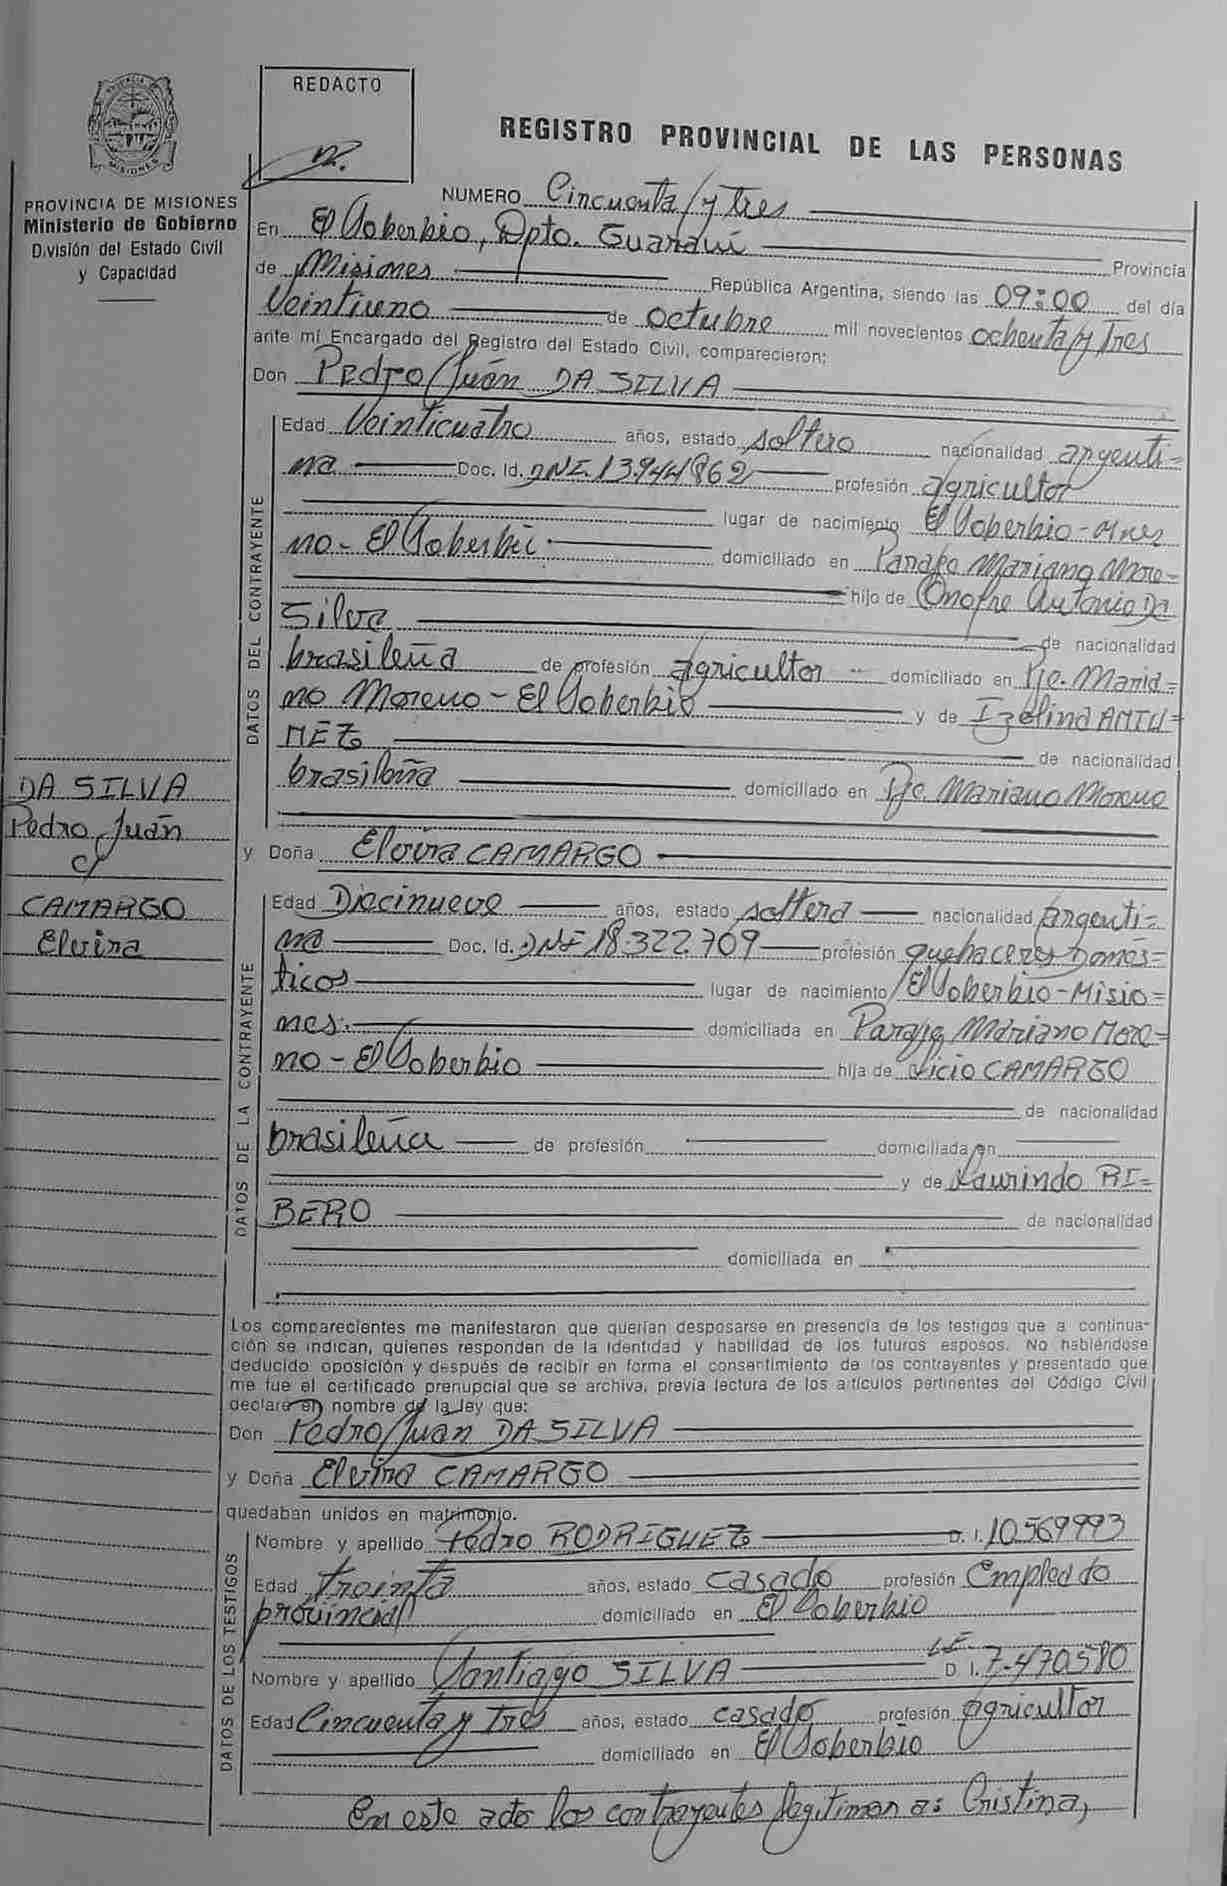 REDACTO
REGISTRO PROVINCIAL DE LAS PERSONAS
MISIONES
PROVINCIA DE MISIONES
Ministerio de Gobierno
División del Estado Civil
y Capacidad
NUMERO Cincuenta y tres
En El Soberbio, Dpto. Guaraní Provincia
de Misiones República Argentina, siendo las 09:00 del día
Veintiuno de octubre mil novecientos ochenta y tres
ante mí Encargado del Registro del Estado Civil, comparecieron:
Don Pedro Juán DA SILVA
DATOS DEL CONTRAYENTE
Edad Veinticuatro años, estado soltero nacionalidad argenti=
na Doc. Id. DNI. 13.944862 profesión agricultor
lugar de nacimiento El Soberbio - Mnes
no - El Soberbio. domiciliado en Paraje Mariano More=
hijo de Onofre Antonio Da
Silva de nacionalidad
brasileña de profesión agricultor domiciliado en Pje. Maria=
no Moreno - El Soberbio y de Izolina ANTU=
NEZ de nacionalidad
brasileña domiciliado en Pje Mariano Moreno
DA SILVA
Pedro Juán
c/
CAMARGO
Elvira
y Doña Elvira CAMARGO
DATOS DE LA CONTRAYENTE
Edad Diecinueve años, estado soltera nacionalidad argenti=
na Doc. Id. DNI 18.322.709 profesión quehaceres domés=
ticos lugar de nacimiento El Soberbio - Misio=
nes. domiciliada en Paraje Mariano More=
no - El Soberbio hija de Licio CAMARGO
de nacionalidad
brasileña de profesión domiciliada en
y de Laurindo RI=
BERO de nacionalidad
domiciliada en
Los comparecientes me manifestaron que querían desposarse en presencia de los testigos que a continua-
ción se indican, quienes responden de la identidad y habilidad de los futuros esposos. No habiéndose
deducido oposición y después de recibir en forma el consentimiento de los contrayentes y presentado que
me fue el certificado prenupcial que se archiva, previa lectura de los artículos pertinentes del Código Civil
declaré en nombre de la ley que:
Don Pedro Juan DA SILVA
y Doña Elvira CAMARGO
quedaban unidos en matrimonio.
DATOS DE LOS TESTIGOS
Nombre y apellido Pedro RODRIGUEZ D. I. 10569993
Edad treinta años, estado casado profesión Empleado
provincial domiciliado en El Soberbio
LE.
Nombre y apellido Santiago SILVA D I. 7.470580
Edad Cincuenta y tres años, estado casado profesión agricultor
domiciliado en El Soberbio
En este acto los contrayentes legitiman a: Cristina,